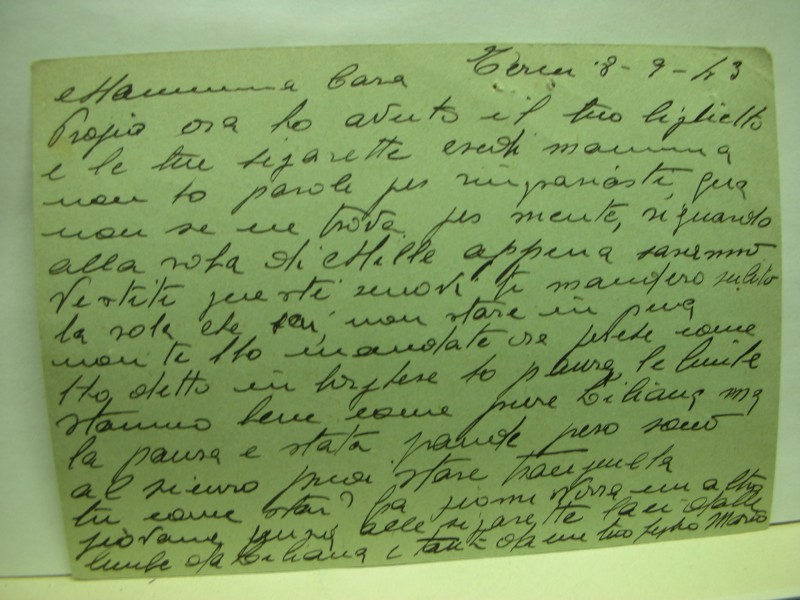 Mammina Cara Terni 8-9-43
Propio ora ho avuto il tuo biglietto
e le tue sigarette credi mamma
non ho parole per ringraziarti, qua
non se ne trova per niente, riguardo
alla roba di Mille appena saranno
vestiti questi nuovi ti mandero subito
la roba che sai, non stare in pena
non te l'ho mandate ora perche come
t'ho detto in borghese ho paura, le bimbe
stanno bene come pure Liliana ma
la paura e stata grande pero sono
al sicuro puoi stare tranquilla
tu come stai? fra giorni verra un altro
giovane, pensa alle sigarette baci dalle
bimbe da Liliana e tanti da me tuo figlio Mario